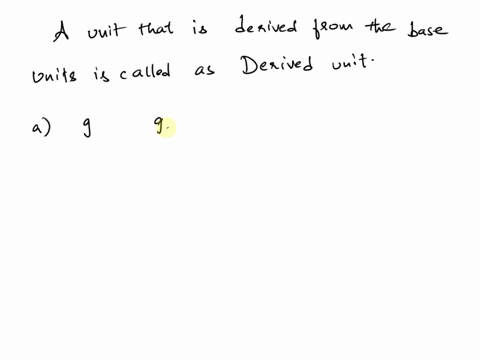 A unit that is derived from the base
units is called as Derived unit.
a) g g.